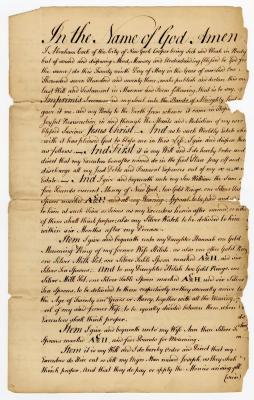 In the Name of God Amen
I Abraham Cock of the City of New York Cooper being Sick and Weak in Body
but of sound and disposing Mind, Memory and Understanding blessed be God for
the same, do this Twenty ninth Day of May in the Year of our Lord One
Thousand seven Hundred and seventy three, make publish and declare this my
Last Will and Testament in Manner and Form following, that is to say,
Imprimis I recommend my Soul into the Hands of Almighty God
gave it me, and my Body to the Earth from whence it came in Hopes
Joyful Resurrection in and through the Merits and Mediation of my ever
blessed Saviour Jesus Christ And as to such Worldly Estate
with it has pleased God to bless me in this Life, I give and dispose
as follows And First it is my Will and I do hereby Order and
direct that my Executors hereafter named do in the first Place pay off and
discharge all my Just Debts and Funeral Expences out of my
Estate And I give and bequeath unto my Son William the Sum
five Pounds current Money of New York, two Gold Rings, one Silver
Spoon marked and all my Wearing Apparel, to be paid and
to him at such Time as soon as my Executors herein after named
of them shall think proper, also my Silver Watch to be delivered to him
within six Months after my Decease.
Item I give and bequeath unto my Daughter Hannah one Gold
Mourning Ring of my former Wife
one Silver Milk Pot, one Silver Table Spoon marked and six
Silver Tea Spoons, And to my Daughter two Gold Rings, one
Silver Milk Pot, one Silver Table Spoon marked and six Silver
Tea Spoons, to be delivered to them respectively as they severally arrive to
the Age of Twenty one Years or Marry, together with all the Wearing
of my said former Wife, to be equally divided between them, when
Executors shall think proper.
Item I give and bequeath unto my Wife Ann three Silver
Spoons marked and five Pounds for Mourning.
Item it is my Will and I do hereby order and Direct that my
Executors do Hire out or Sell my Negro Man named Joseph, as they shall
think proper. And that they do pay or apply the Monies arising